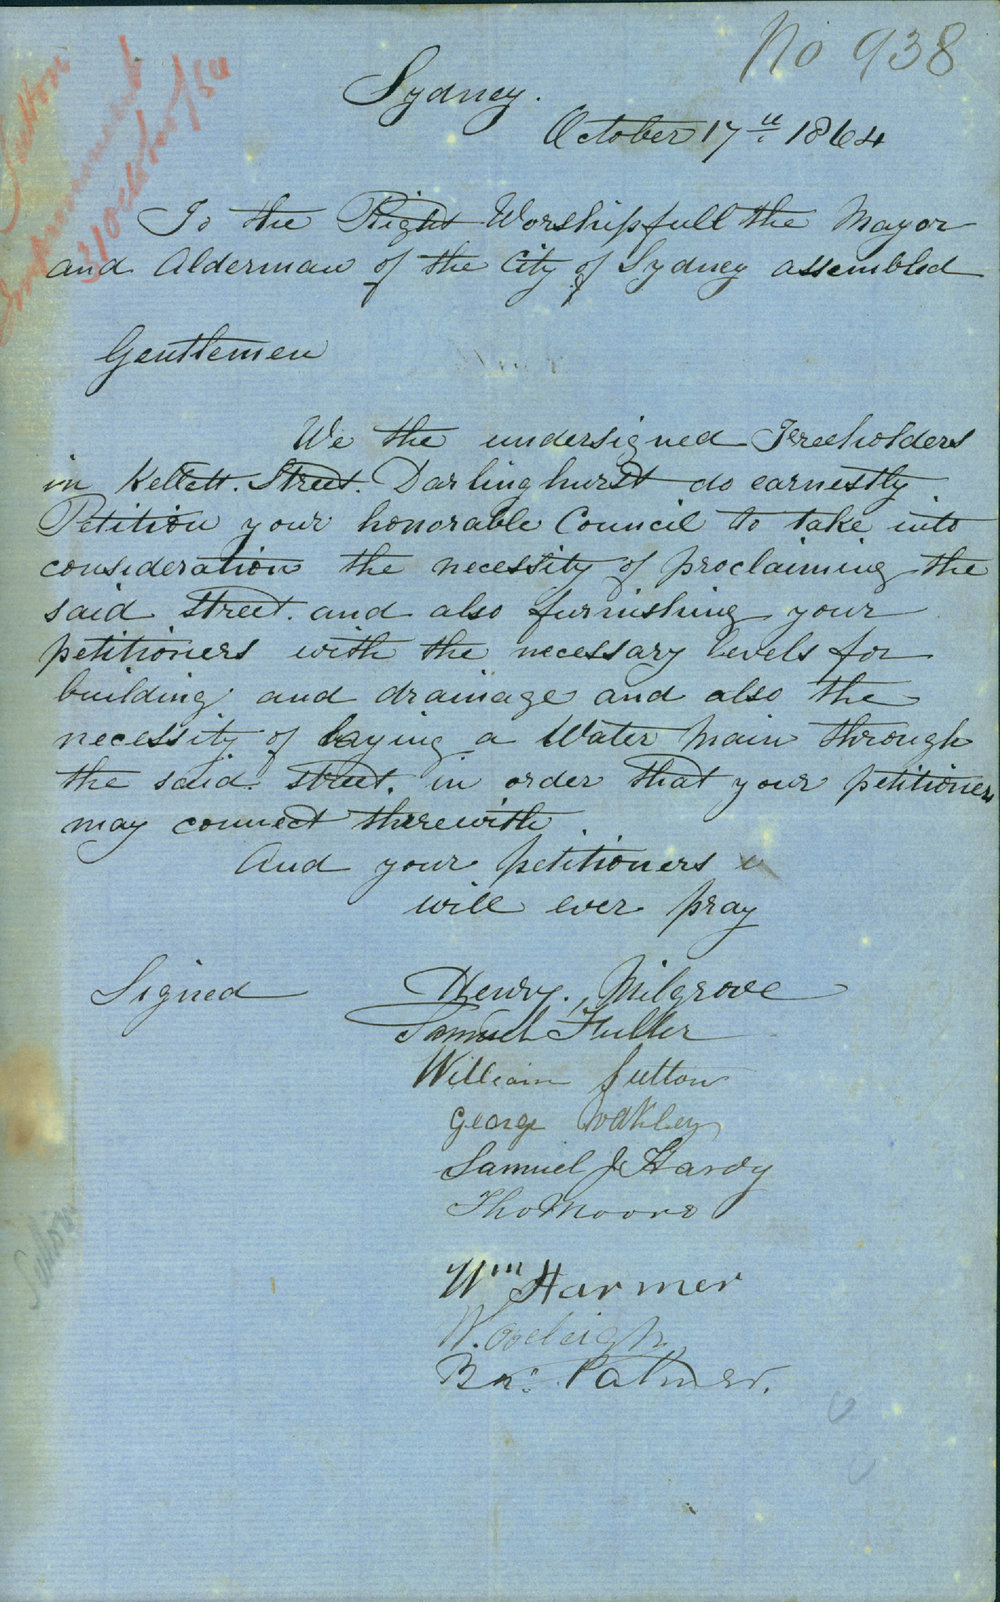 No 938
Sutton
Improvement
31 October/64
Sydney.
October 17th 1864
To the Right Worshipfull the Mayor
and Alderman of the City of Sydney assembled
Gentlemen
We the undersigned Freeholders
in Kellett. Street. Darlinghurst do earnestly
Petition your honorable Council to take into
consideration the necessity of proclaiming the
said street. and also furnishing your
petitioners with the necessary levels for
building and drainage and also the
necessity of laying a Water main through
the said street. in order that your petitioners
may connect therewith
And your petitioners
will ever pray
Signed Henry. Milgrove
Samuel Fuller
William Sutton
George Oakley
Samuel J Hardy
Tho Moore
Wm Harmer
W.
Palmer.